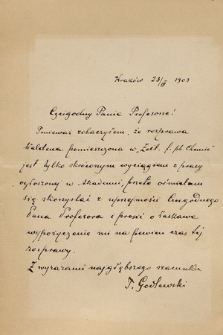 Kraków 23/II 1903
Czcigodny Panie Profesorze!
Ponieważ zobaczyłem, że rozprawa
Waldena pomieszczona w Zeit. f. ph. Chemie
jest tylko skróconym wyciągiem z pracy
ogłoszonej w Akademii, przeto ośmielam
się skorzystać z uprzejmości Czcigodnego
Pana Profesora z prośbą o łaskawe
wypożyczenie mi na pewien czas tej
rozprawy.
Z wyrazami najgłębszego szacunku
T. Godlewski